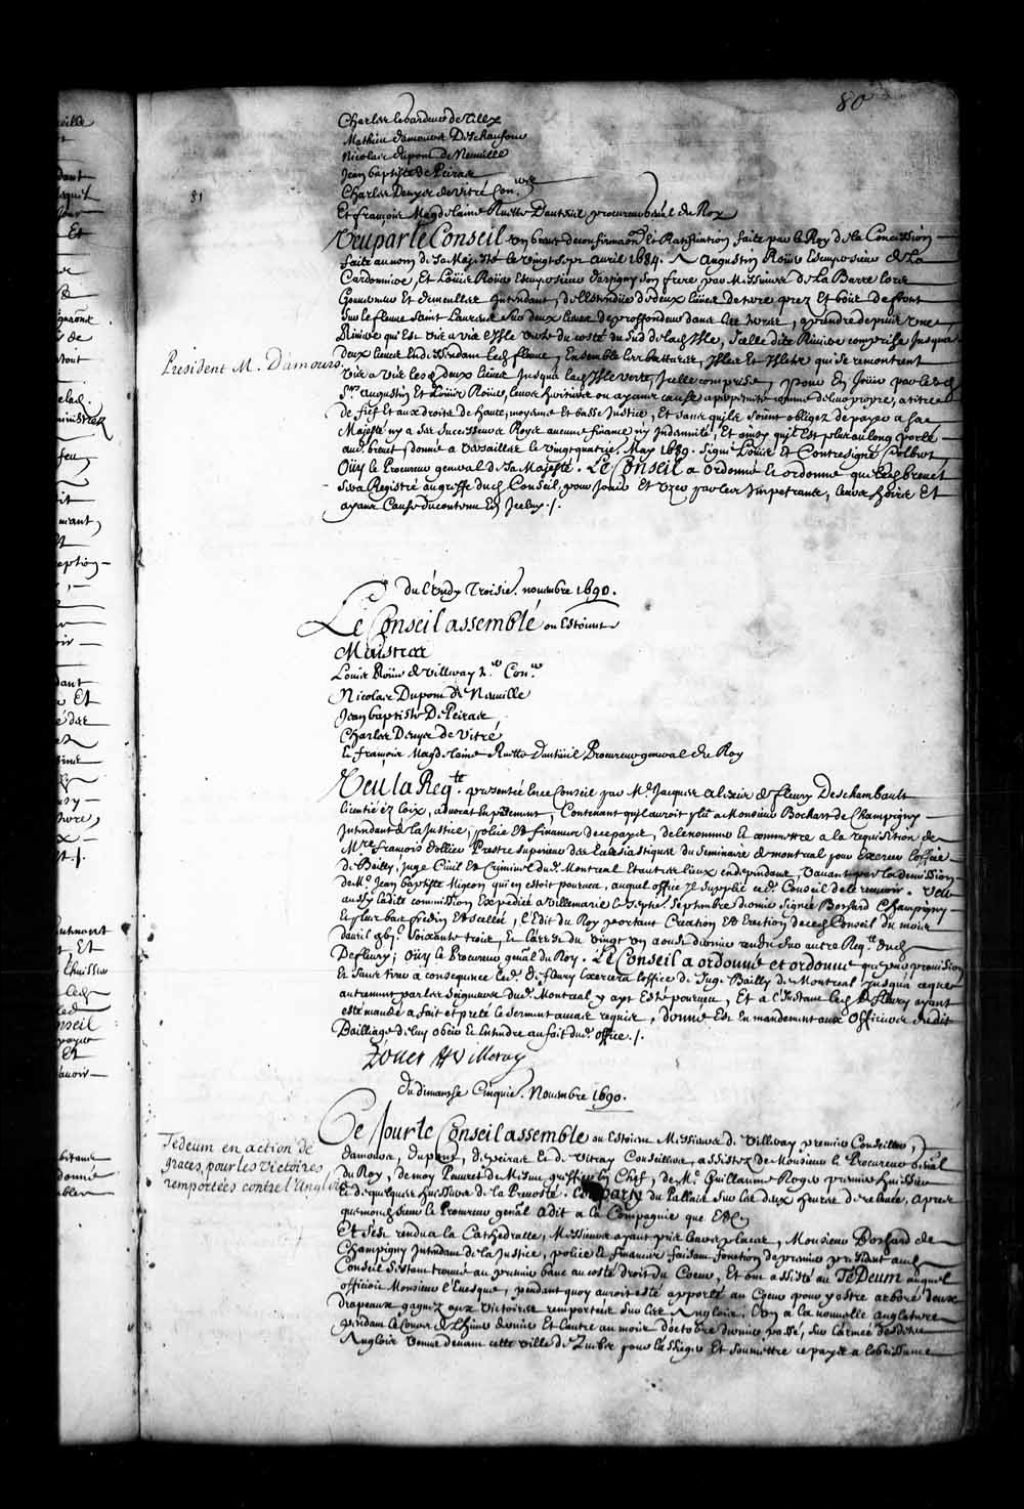 80
Charles Legardeur de Tilly
Mathieu damours Deschaufour
Nicolas dupont de Neuville
Jean baptiste de Peiras
Charles Denys de Vitré Con.ers
Et françois Magdelaine Ruette Dauteuil procureur g'ral du Roy
81
Veu par le Conseil un brevet de confirmaôn Et Ratiffication faite par le Roy de la Concession
faite au nom de Sa Majesté le vingt sept avril 1684. A Augustin Roüer Escuyer sieur de La
Cardonniere, Et Loüis Roüer Escuyer sieur d'artigny son frere par Messieurs de La Barre lors
Gouverneur Et demeulles Intendant, de l'Estendüe de deux lieües de terre prez Et bois de front
Sur le fleuve Saint Laurens sur deux lieües de proffondeur dans les terres, a prendre depuis une
Riviere qui Est vis a vis l'Isle verte du costé du Sud de lad. Isle, Icelle dite Riviere comprise jusqua
deux lieües En descendant led. fleuve, Ensemble les battures, Isles Et Islets qui se rencontrent
President M. Damours
vis a vis lesd. deux lieües jusqua lad. Isle verte, Icelle comprise, pour En Jöuir par lesd.
Srs. augustin Et Loüis Roüer, leurs heritiers ou ayans cause a perpetuité comme de leur propre, a titre
de fief Et aux droits de haute, moyenne Et basse Justice, Et sans quils soient obligez de payer a Sa
Majesté ny a ses successeurs Roys aucune finance ny Indemnité, Et ainsy quil Est plus au long porté
aud. brevet donné a Versailles le vingt quatrie. May 1689. Signé Louis Et Contresigné Colbert,
Oüy le Procureur general de Sa Majesté. Le Conseil a Ordonné Et ordonne que led. brevet
sera Registré au greffe dud. Conseil, pour Jouir Et User par les Impetrants, leurs hoirs Et
ayans Cause du contenu En Iceluy./.
Du Lundy Troisie. novembre 1690.
Le Conseil assemblé ou Estoient
Maistres
Louis Roüer de Villeray p.er Con.er
Nicolas Dupont de Neuville
Jean baptiste De Peiras
Charles Denys de Vitré
Et françois Magdelaine Ruette dauteüil Procureur general du Roy
Veu la Req.te presentée En ce Conseil par M.e Jacques alexis de fleury Deschambault
licentié ez Loix, advocat En parlement, Contenant qu'il auroit plû a Monsieur Bochart de Champigny
Intendant de la Justice, police Et finances de ce pays, de le nommer Et commettre a la requisition de
M.re François dollier Prestre superieur des Ecclesiastiques du Seminaire de montreal pour Exercer l'office
de Bailly, Juge Civil Et Criminel dud. Montreal Et autres lieux en dependans, Vacant par la demission
de M.e Jean baptiste Migeon qui en estoit pourveu, auquel office Il supplie ced. Conseil de le recevoir. Veu
aussy ladite commission Expediée a Villemarie le septie. septembre dernier signée Bochard Champigny
Et plus bas fredin Et scellée, l'Edit du Roy portant Creation Et Erection de ced. Conseil du mois
davril gbj.c soixante trois, Et l'arrest du vingt un aoust dernier rendu sur autre Req.te dud.
De fleury; oüy le Procureur gnâl du Roy. Le Conseil a ordonné et ordonne que par provision
Et sans tirer a consequence led. De fleury Exercera l'office de Juge Bailly de Montreal jusqua ce que
autrement par les seigneurs dud. Montreal y ayt Esté pourveu, Et a l'Instant led. De fleury ayant
esté mandé a fait et preté le serment au cas requis, donne Est En mandement aux officiers dudit
Bailliage de luy obeir Et Entendre au fait dud. office./.
Roüer De Villeray
Du dimanche Cinquie. Novembre 1690.
Ce Jour le Conseil assemblé ou Estoient Messieurs de Villeray premier Conseiller,
Tedeum en action de
graces, pour les victoires
remportées contre l'Anglois
damours, dupont, depeiras Et de Vitray Conseillers, assistez de Monsieur le Procureur G'nâl
du Roy, de moy Peuvret de Mesnu greffier En Chef, de M.e Guillaume Roger premier huissier
Et de quelques huissiers de la Prevosté. Est party du Pallais sur les deux heures de relevée, apres
que mond. sieur le Procureur general a dit a la Compagnie que Etc.
Et s'est rendu a la Cathedralle, Messieurs ayant pris leurs places, Monsieur Bochard de
Champigny Intendant de la Justice, police Et finances faisant fonction de premier president aud.
Conseil s'estant trouvé au premier banc au costé droit du Coeur, Et ont assisté au TeDeum auquel
officioit Monsieur l'Evesque, pendant quoy auroit esté apporté au Coeur pour y estre arboré deux
drapeaux gagnez aux victoires remportées sur les Anglois, l'un a la nouvelle angleterre
pendant le Cours de l'hiver dernier Et l'autre au mois d'octobre dernier passé, sur l'armée desdits
Anglois venue devant cette ville de Quebec pour l'assieger Et soumettre ce pays a l'obeissance